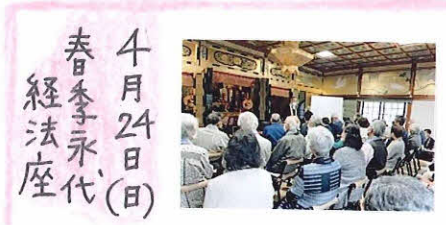 4月24日(日)
春季永代
経法座